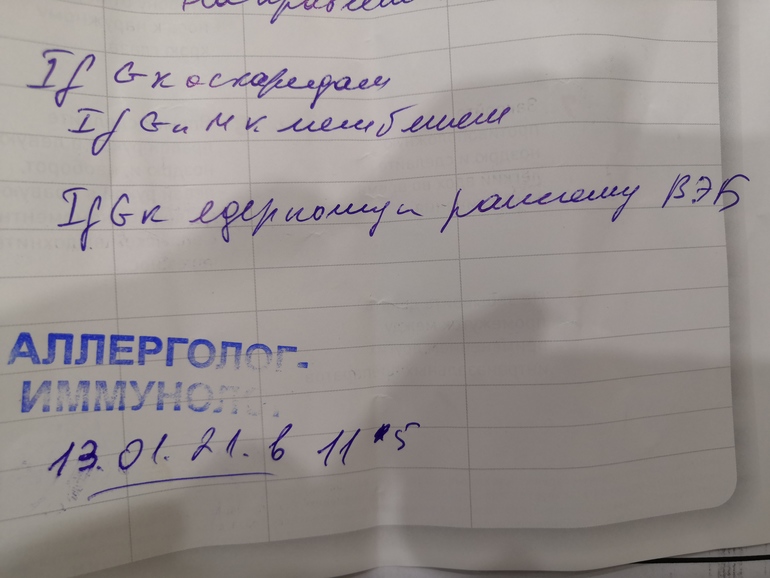 Ig G к аскаридам
Ig G и М к лямблиям
Ig G к ядерному и раннему ВЭБ
АЛЛЕРГОЛОГ-
ИММУНОЛ
13.01.21. в 11 15